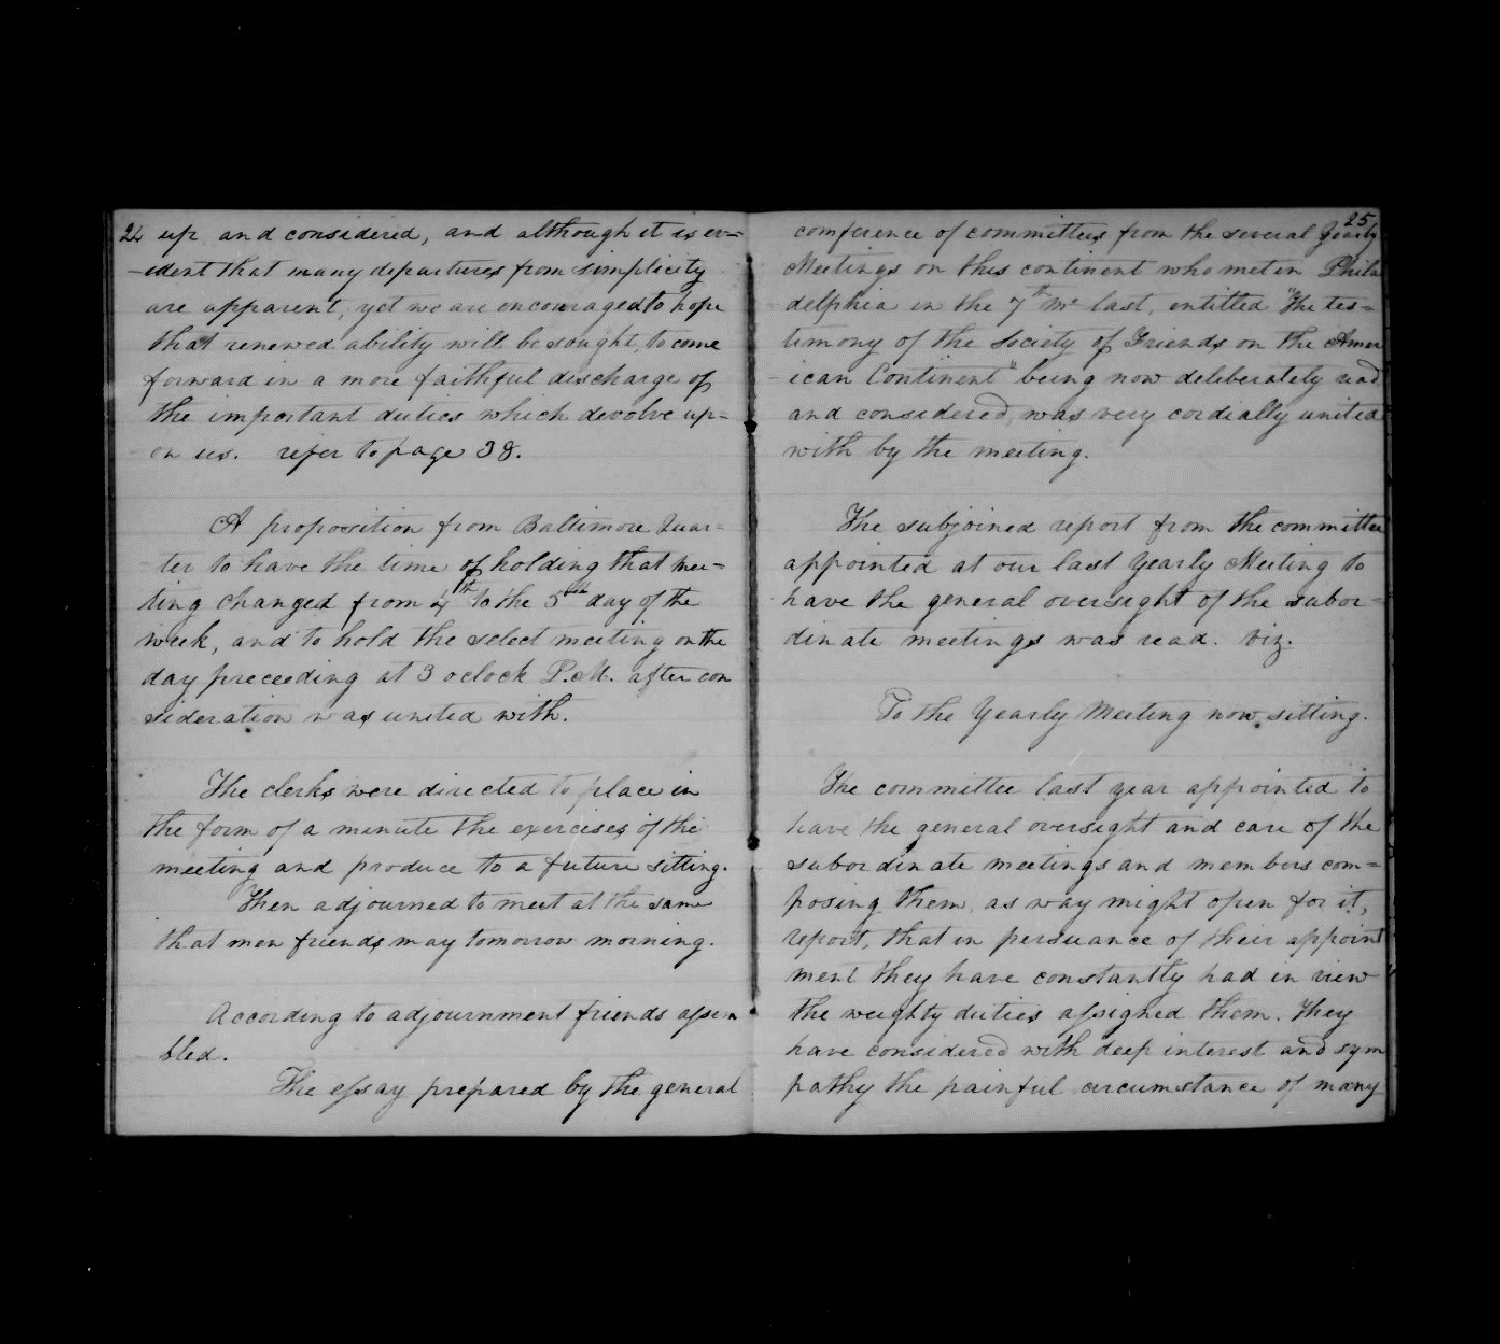 24 up and considered, and although it is ev=
-ident that many departures from simplicity
are apparent, yet we are encouraged to hope
that renewed ability will be sought, to come
forward in a more faithful discharge of
the important duties which devolve up=
on us. refer to page 38.
A proposition from Baltimore Quar-
ter to have the time of holding that mee=
ting changed from 4th to the 5th day of the
week, and to hold the select meeting on the
day preceeding at 3 oclock P.M. after con
sideration was united with.
The clerks were directed to place in
the form of a minute the exercises of the
meeting and produce to a future sitting.
Then adjourned to meet at the same
that men friends may tomorrow morning.
According to adjournment friends assem
bled.
The essay prepared by the general
25
comference of committees from the several Yearly
Meetings on this continent who met in Phila
delphia in the 7th Mo last, entitled "The tes=
timony of the Society of Friends on the Amer
ican Continent" being now deliberately read
and considered, was very cordially united
with by the meeting.
The subjoined report from the committee
appointed at our last Yearly Meeting to
have the general oversight of the subor-
dinate meetings was read. viz.
To the Yearly Meeting now sitting.
The committee last year appointed to
have the general oversight and care of the
subordinate meetings and members com=
posing them, as way might open for it,
report, that in persuance of their appoint
ment they have constantly had in view
the weighty duties assigned them. They
have considered with deep interest and sym
pathy the painful circumstance of many